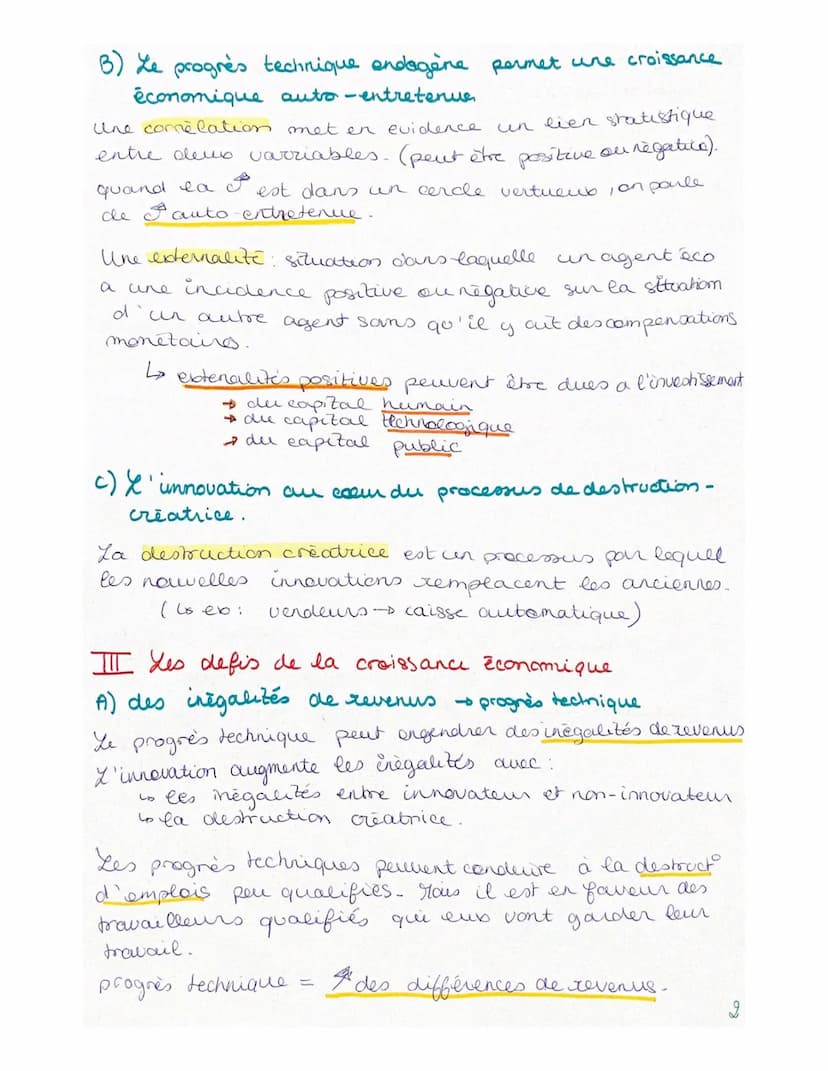 B) Le progrès technique endogène permet une croissance
économique auto-entretenue
Une corrélation met en evidence un lien statistique
entre deux varriables. (peut être positive ou négative).
quand la ↗ est dans un cercle vertueux, on parle
de ↗ auto-entretenue.
Une externalité : situation dans laquelle un agent éco
a une incidence positive ou négative sur la situation
d'un autre agent sans qu'il y ait des compensations
monétaires.
↳ externalités positives peuvent être dues a l'investissement
→ du capital humain
→ du capital technologique
→ du capital public
C) L'innovation au cœur du processus de destruction-
créatrice.
La destruction créatrice est un processus par lequel
les nouvelles innovations remplacent les anciennes.
(↳ ex : vendeurs → caisse automatique)
III Les defis de la croissance économique
A) des inégalités de revenus → progrès technique
Le progrès technique peut engendrer des inégalités de revenus
L'innovation augmente les inégalités avec :
↳ les inégalités entre innovateur et non-innovateur
↳ la destruction créatrice.
Les progrès techniques peuvent conduire à la destruct°
d'emplois peu qualifiés. Mais il est en faveur des
travailleurs qualifiés qui eux vont garder leur
travail.
progrès technique = ↗ des différences de revenus.
2